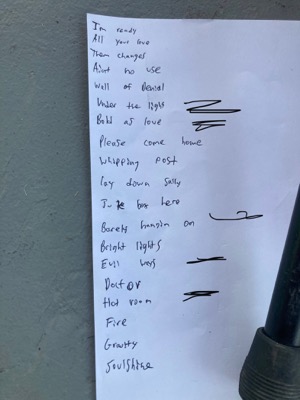 I'm ready
All your love
Them changes
Aint no use
Wall of Denial
Under the light
Bold as love
Please come home
Whipping post
Lay down Sally
Juke box hero
Barely hangin on
Bright lights
Evil ways
Doctor
Hot room
Fire
Gravity
Soulshine